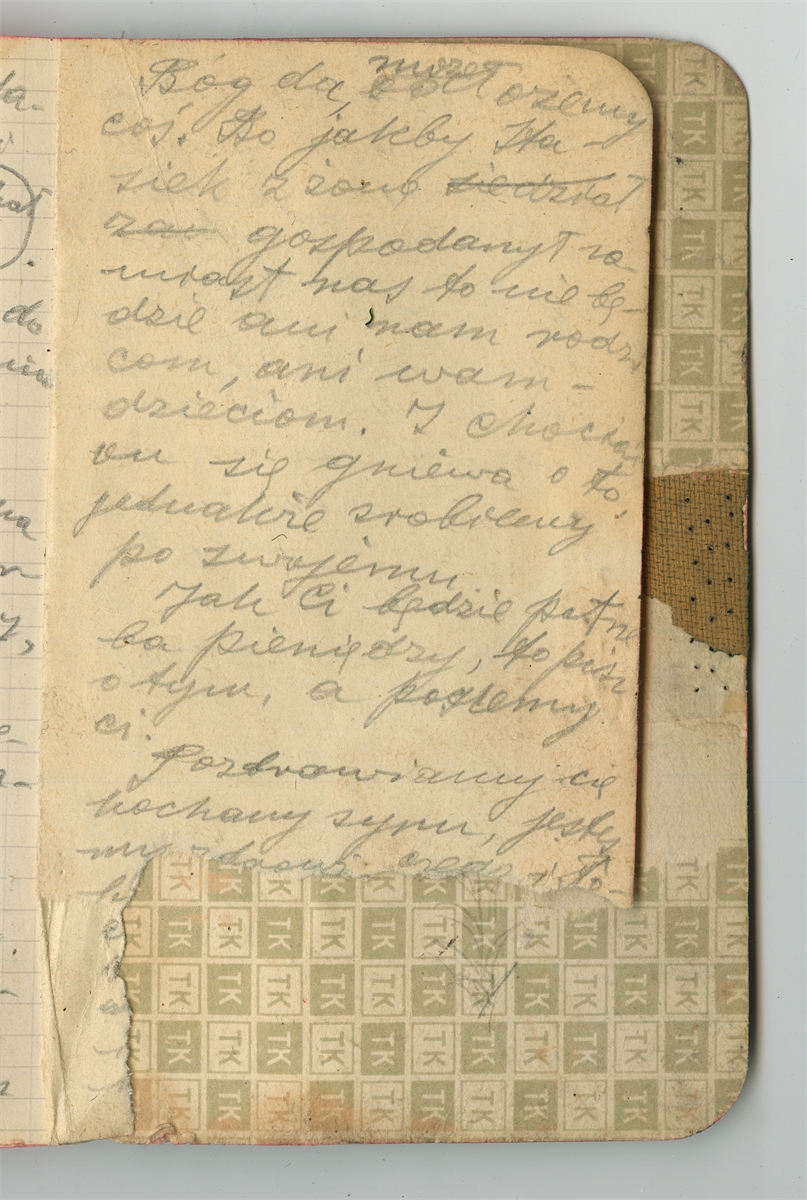 Bóg da, może odłożemy
coś. Bo jakby Sta-
siek z żoną siedział
zaś gospodarzył za-
miast nas to nie bę-
dzie ani nam rodzi
com, ani wam -
dzieciom. I chociaż
on się gniewa o to,
jednakże zrobilemy
po swojemu.
Jak Ci będzie potrze
ba pieniędzy, to pisz
o tym, a poszlemy
ci.
Pozdrawiamy cię
kochany synu, jeste
my zdrowi czego i To-